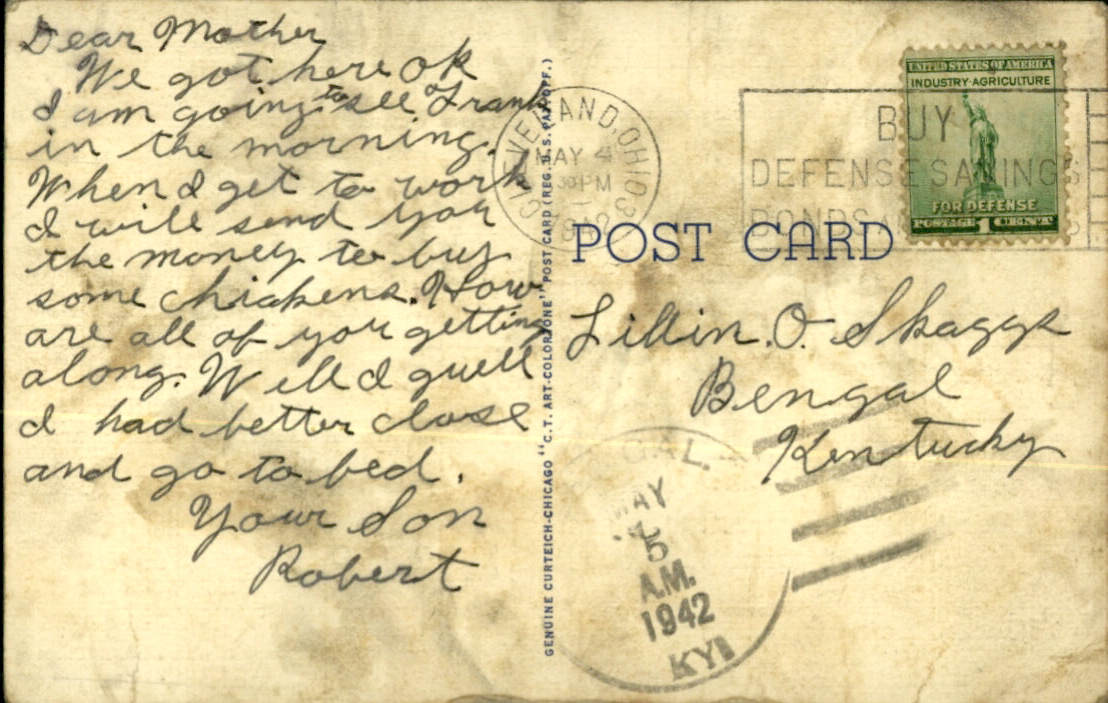 Dear Mother
We got here ok
I am going to see Frank
in the morning.
When I get to work
I will send you
the money to buy
some chickens. How
are all of you getting
along. Well I guell
I had better close
and go to bed.
Your Son
Robert
GENUINE CURTEICH-CHICAGO "C.T. ART-COLORTONE" POST CARD (REG. U.S. PAT. OFF.)
CLEVELAND, OHIO
MAY 4
30 PM
1942
BUY
DEFENSE SAVINGS
BONDS
UNITED STATES OF AMERICA
INDUSTRY-AGRICULTURE
FOR DEFENSE
POSTAGE 1 CENT
POST CARD
Lillin. O. Skaggs
Bengal
Kentucky
GAL.
MAY
5
A.M.
1942
KY